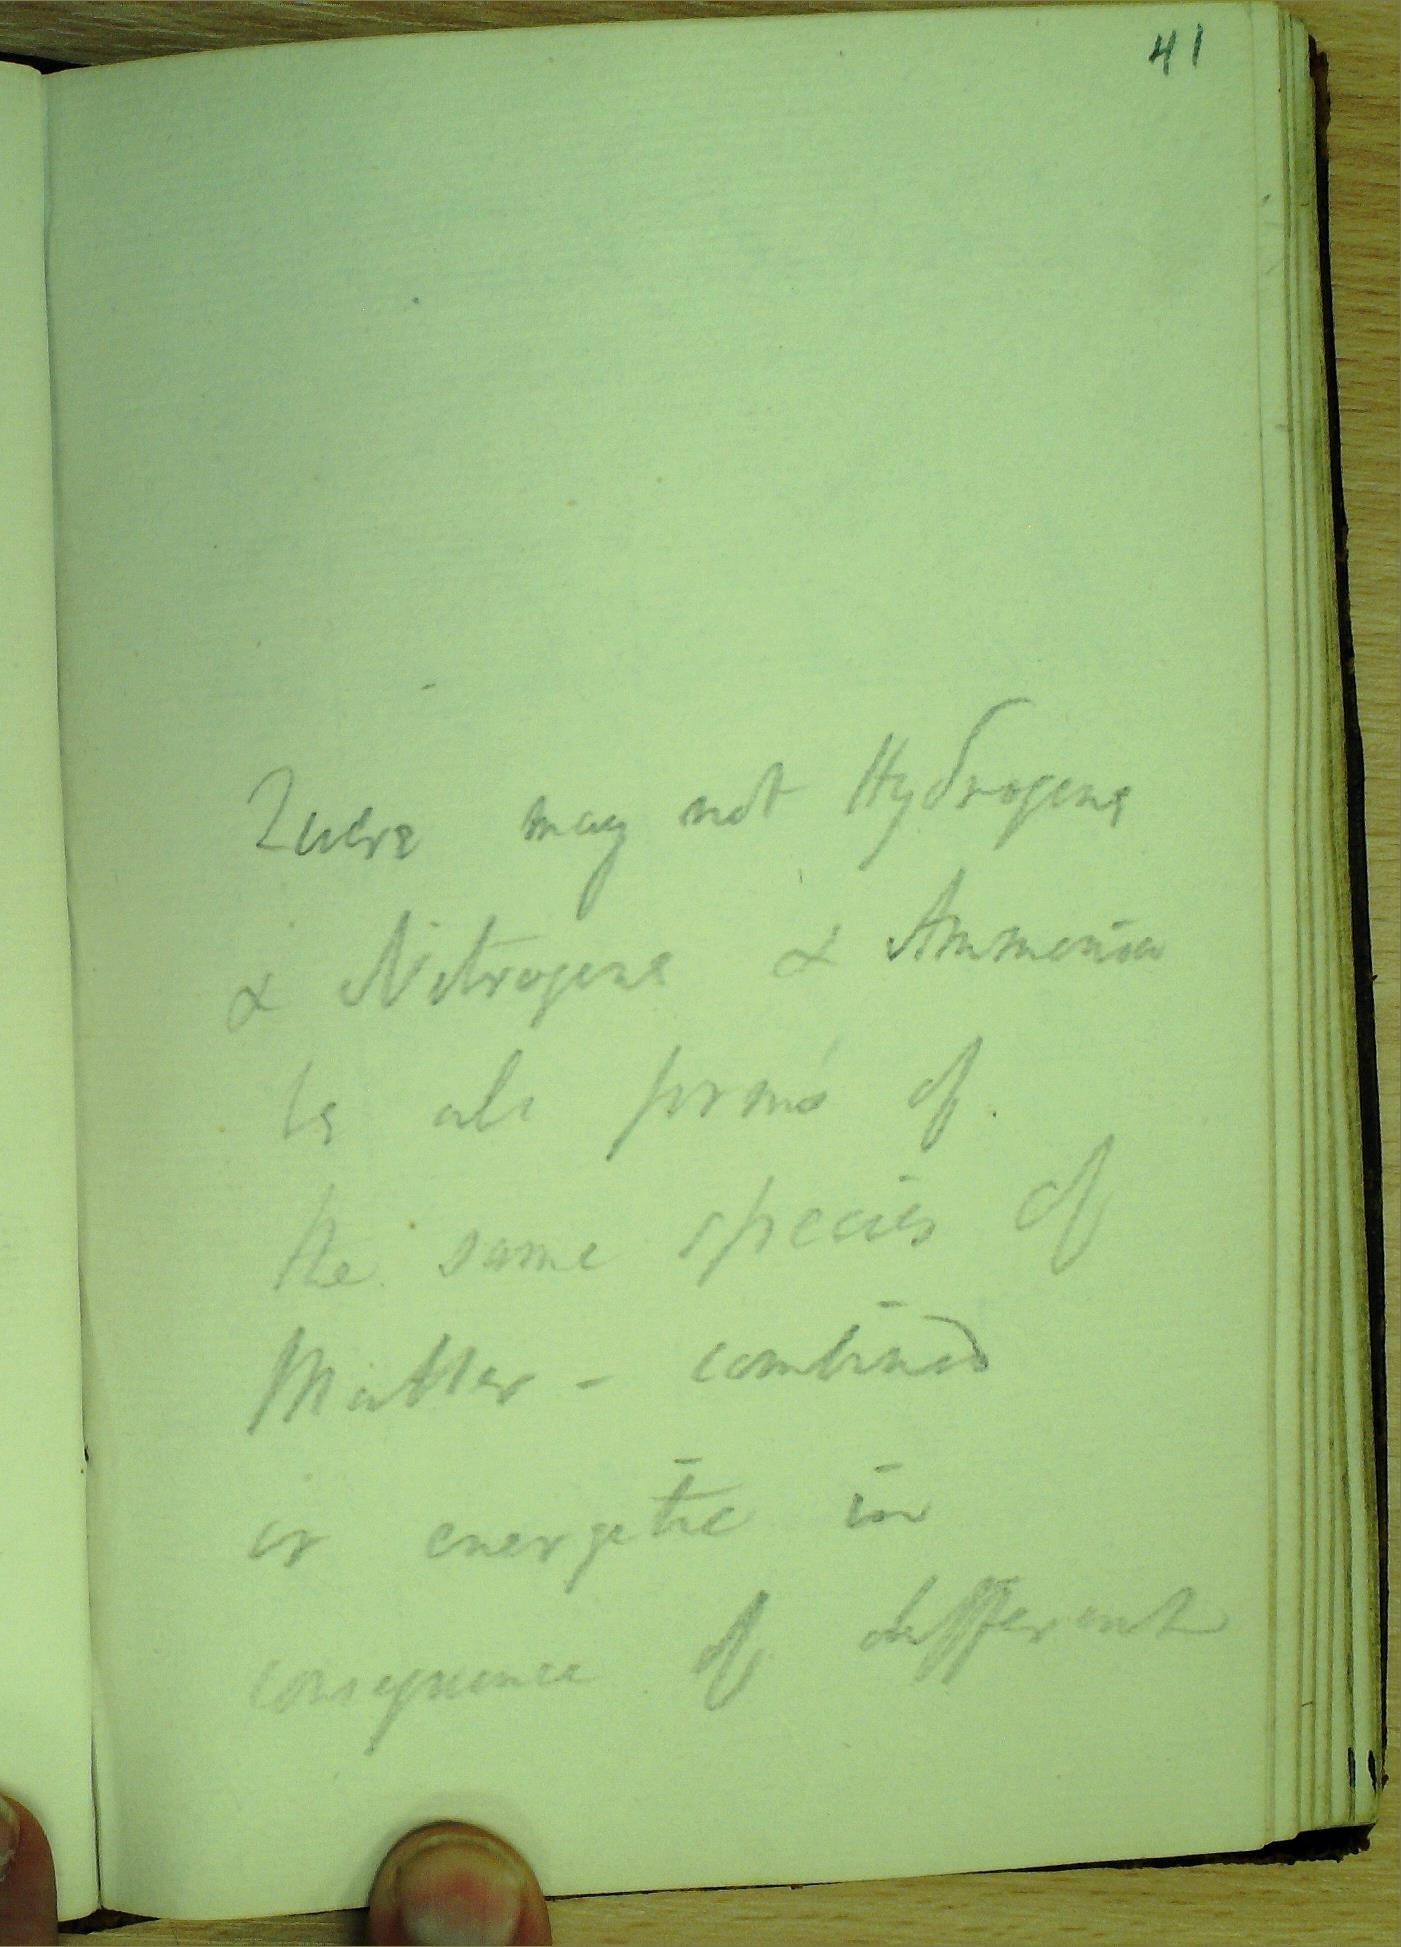 41
Quere may not Hydrogene
& Nitrogene & Ammonia
be all forms of
the same species of
Matter - combined
or energetic in
consequence of different